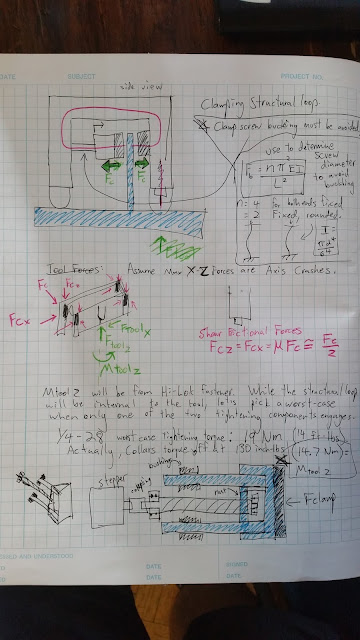 DATE
SUBJECT
PROJECT NO.
side view
Clamping Structural loop.
Clamp screw buckling must be avoided
use to determine
screw
diameter
to avoid
buckling
Fb = nπ²EI
L²
n = 4 for both ends fixed
= 2 Fixed, rounded.
I =
πd⁴
64
Fc
Fc
Tool Forces: Assume Max X-Z Forces are Axis Crashes.
Fc
Fcz
Fcx
Ftoolx
Ftoolz
Mtoolz
Shear Frictional Forces
Fcz = Fcx = μFc ≅ Fc
2
Mtoolz will be from Hi-Lok fastener. While the structural loop
will be internal to the tool, let's pick a worst-case
when only one of the two tightening components engages.
1/4 - 28 worst case tightening torque: 19 Nm (14 ft-lbs)
Actually, Collars torque off at 130 in-lbs
14.7 Nm =
Mtoolz
bushing
stepper
coupling
nut
Fclamp
DATE
DATE
DATE